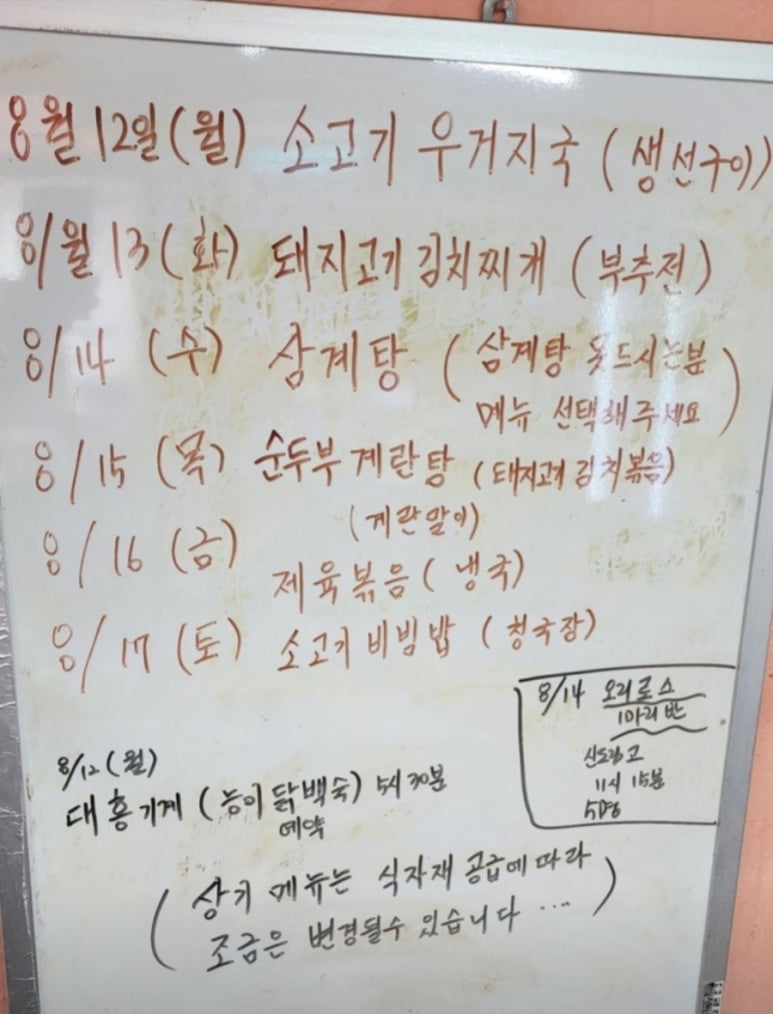 8월 12일(월) 소고기 우거지국 (생선구이)
8/월 13(화) 돼지고기 김치찌개 (부추전)
8/14 (수) 삼계탕 (삼계탕 못드시는분
메뉴 선택해주세요)
8/15 (목) 순두부계란탕 (돼지고기 김치볶음)
(계란말이)
8/16 (금) 제육볶음 (냉국)
8/17 (토) 소고기비빔밥 (청국장)
8/14 오리로스
1마리반
11시 15분
5명
8/12 (월)
대흥기계 (능이닭백숙) 5시 30분
예약
(상기 메뉴는 식자재 공급에따라
조금은 변경될수 있습니다 ....)